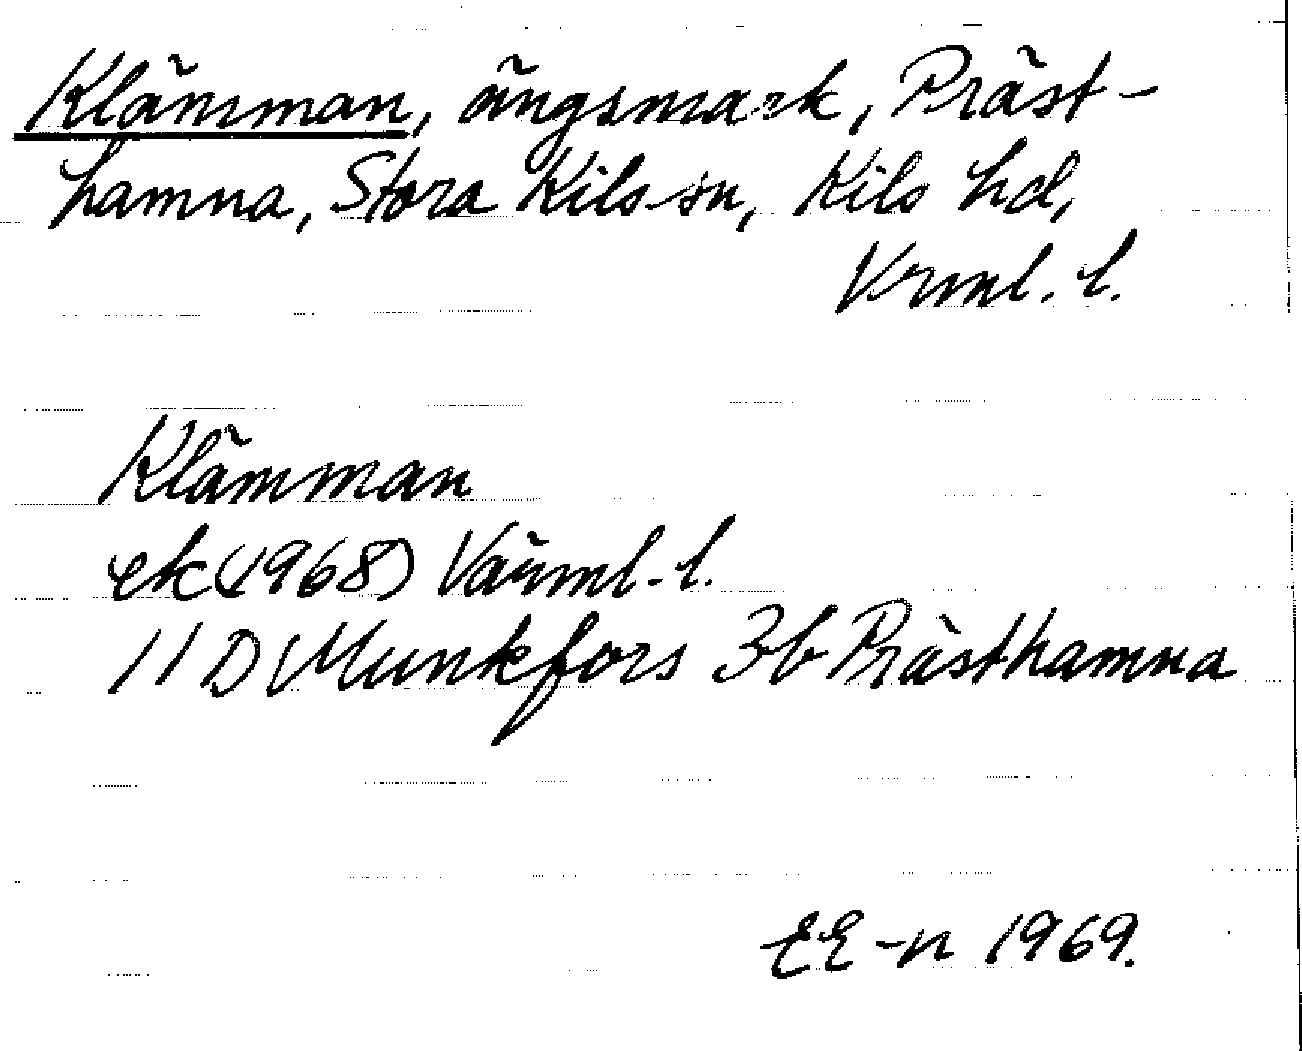 Klämman, ängsmark, Präst-
hamna, Stora Kils sn, Kils hd,
Vrml. l.
Klämman
ek (1968) Värml. l.
11 D Munkfors 3b Prästhamna
EE-n 1969.